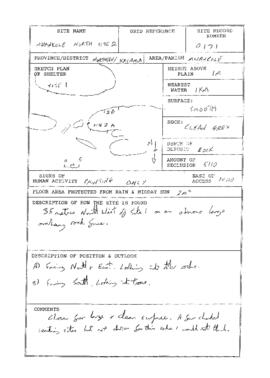 SITE NAME
GRID REFERENCE
SITE RECORD NUMBER
NORTH SITE 2
0171
PROVINCE/DISTRICT NORTHERN/
AREA/FARIUM
SKETCH PLAN OF SHELTER
HEIGHT ABOVE PLAIN 1M
SITE 1
NEAREST WATER 1KM
SURFACE:
SMOOTH
ROCK:
CLEAN GREY
DEPTH OF DEPOSIT ROCK
AMOUNT OF SECLUSION 5/10
SIGNS OF HUMAN ACTIVITY PAINTING ONLY
EASE OF ACCESS 10/10
FLOOR AREA PROTECTED FROM RAIN & MIDDAY SUN 2m²
DESCRIPTION OF HOW THE SITE IS FOUND
35 metres North West of site 1 on an obvious large
rock face.
DESCRIPTION OF POSITION & OUTLOOK
A) Facing North & East. Looking into other rocks.
B) Facing South. Looking into
COMMENTS
Chosen for large & clean surface. A
sites but not chosen for this I would think.